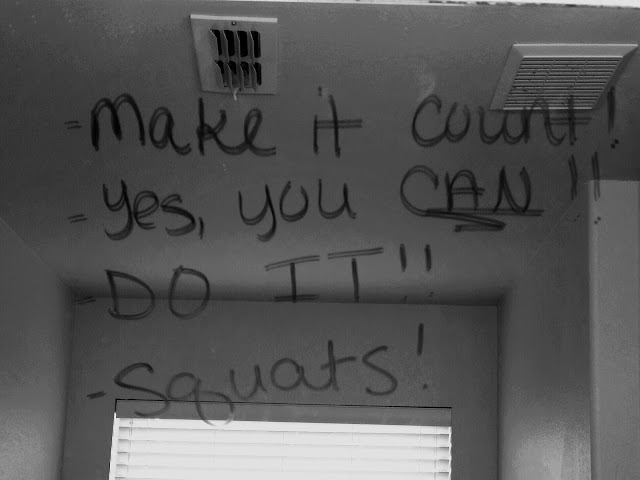 - Make it count!
- Yes, you CAN!!
- DO IT!!
- Squats!